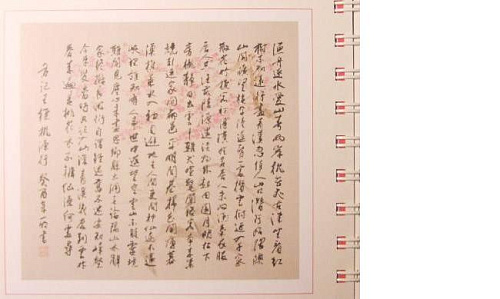 漁舟逐水愛山春兩岸桃花夾古津坐看紅
樹不知遠行盡青溪忽值人山口潛行始隈隩
山開曠望旋平陸遙看一處攢雲樹近入千家
散花竹樵客初傳漢姓名居人未改秦衣服
居人共住武陵源還從物外起田園月明松下
房櫳靜日出雲中雞犬喧驚聞俗客爭來集
競引還家問都邑平明閭巷掃花開薄暮
漁樵乘水入初因避地去人間更問神仙遂不還
峽裏誰知有人事世中遙望空雲山不疑靈境
難聞見塵心未盡思鄉縣出洞無論隔山水辭
家終擬長游衍自謂經過舊不迷安知峰壑
今來變當時只記入山深青溪幾曲到雲林
春來遍是桃花水不辨仙源何處尋
王維桃源行 癸酉年 書